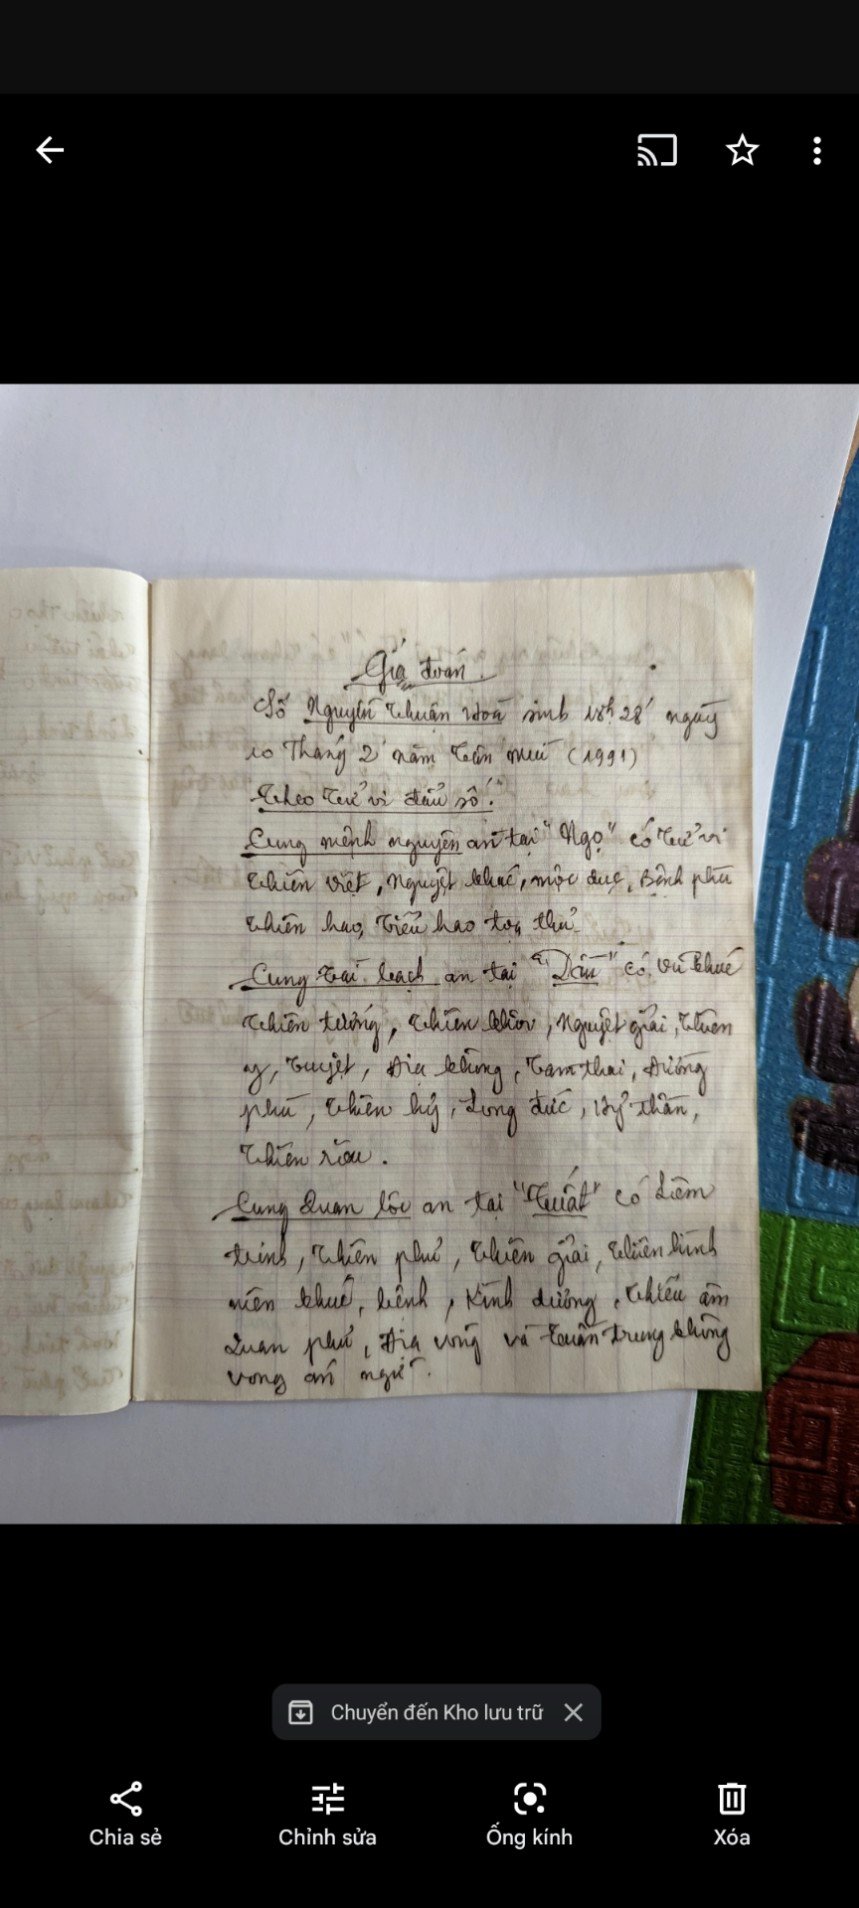 Giả đoán.
Số Nguyễn Thuận Hoà sinh 18h28' ngày
10 Tháng 2 năm Tân Mùi (1991)
Theo Tử vi đẩu số:
Cung mệnh nguyên an tại "Ngọ" có Tử vi
Thiên việt, Nguyệt khúc, mộc dục, Bệnh phù
Thiên hao, Tiểu hao toạ thủ.
Cung Tài bạch an tại "Dần" có vũ khúc
Thiên tướng, Thiên khôi, Nguyệt giải, Thiên
y, Tuyệt, Địa không, Tam thai, Đường
phù, Thiên hỷ, Long đức, Thiên riêu.
Cung Quan lộc an tại "Tuất" có Liêm
trinh, Thiên phủ, Thiên giải, Thiên hình
niên khuế, bệnh, Kình dương, Thiếu âm
Quan phủ, Địa võng và Tuần trung không
vong án ngữ.
Chuyển đến Kho lưu trữ
Chia sẻ Chỉnh sửa Ống kính Xóa